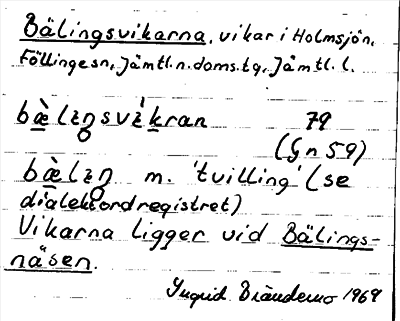 Bälingsvikarna, vikar i Holmsjön,
Föllinge sn, Jämtl. n. doms. tg, Jämtl. l.
bὲlıŋsvìkran 79
(Gn 59)
bὲlıŋ m. 'tvilling' (se
dialektordregistret)
Vikarna ligger vid Bälings-
näsen.
Ingrid Brändemo 1969